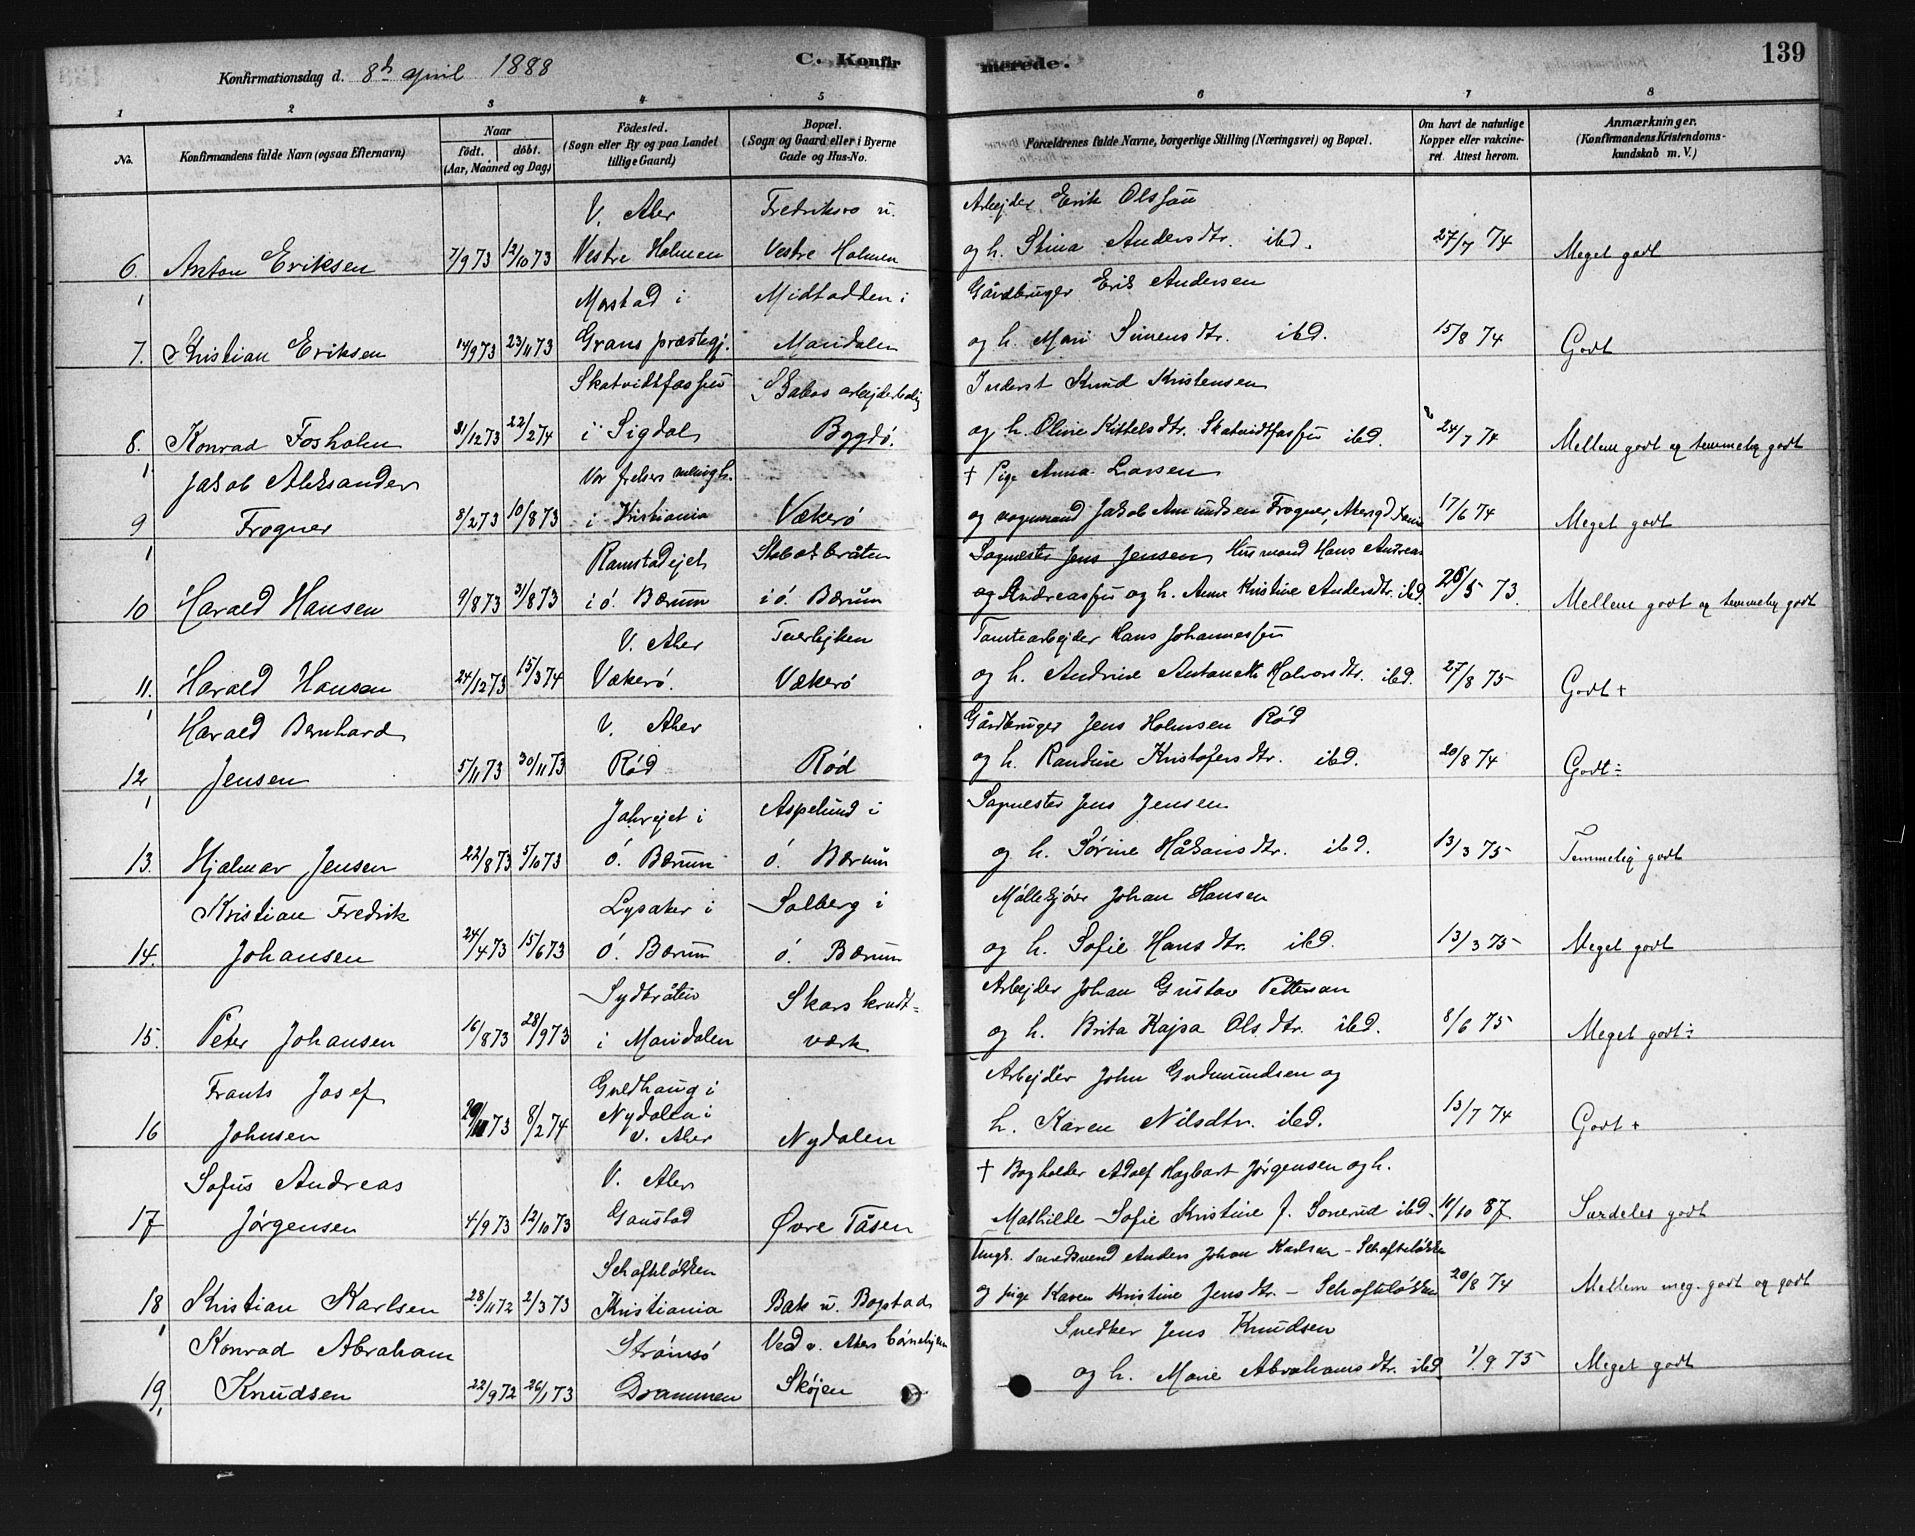 Konfirmationsdag d. 8de april 1888 C. Konfirmerede. 139
1 2 3 4 5 6 7 8
No. Konfirmandens fulde Navn (ogsaa Efternavn) Naar födt. döbt. (Aar, Maaned og Dag) Födested. (Sogn eller By og paa Landet tillige Gaard) Bopæl. (Sogn og Gaard eller i Byerne Gade og Hus-No. Forældrenes fulde Navne, borgerlige Stilling (Næringsvei) og Bopæl. Om havt de naturlige Kopper eller vakcineret. Attest herom. Anmærkninger. (Konfirmandens Kristendomskundskab m. V.)
V. Aker Fredriksro u. Arbejder Erik Olssøn
6. Anton Eriksen 7/9 73 12/10 73 Vestre Holmen Vestre Holmen og h. Stina Andersdtr. ibd. 27/7 74 Meget godt
Morstad i Midtodden i Gårdbruger Erik Andersen
7. Kristian Eriksen 14/9 73 23/11 73 Grans præstegj. Maridalen og h. Mari Simensdtr. ibd. 15/8 74 Godt
Skatvidtfossen arbejderbolig Inderst Knud Kristensen
8. Konrad Fosholm 31/12 73 22/2 74 i Sigdal Bygdö. og h. Oline Kittelsdtr. Skatvidtfossen ibd. 24/7 74 Mellem godt og temmelig godt
Jakob Aleksander Vor frelsers menigh. † Pige Anna Larsen
9 Frogner 8/2 73 10/8 73 i Kristiania Vækerö og vognmand Jakob Amundsen Frogner, 17/6 74 Meget godt
Ramstadejet Stabækbråten Sagmester Jens Jensen Husmand Hans Andreas
10 Harald Hansen 9/8 73 31/8 73 i ö. Bærum i ö. Bærum og Andreassen og h. Anne Kristine Andersdtr. ibd. 26/5 73. Mellem godt og temmelig godt
V. Aker Tværlejken Tomtearbejder Hans Johannessen
11. Harald Hansen 24/12 73 15/3 74 Vækerö. Vækerö og h. Andrine Antonette Halvorsdtr. ibd. 27/8 75 Godt +
Harald Bernhard V. Aker Gårdbruger Jens Holmsen Rød
12 Jensen 5/11 73 30/11 73 Rød Rød og h. Randine Kristofersdtr. ibd. 20/8 74 Godt ÷
Jarejet i Aspelund i Sagmester Jens Jensen
13. Hjalmar Jensen 22/8 73 5/10 73 ö. Bærum ö. Bærum og h. Sørine Håkonsdtr. ibd. 13/3 75 Temmelig godt
Kristian Fredrik Lysaker i Solberg i Møllekjører Johan Hansen
14. Johansen 24/4 73 15/6 73 ö. Bærum ö. Bærum og h. Sofie Hansdtr. ibd. 13/3 75 Meget godt
Sydbråten Skars krudt= Arbejder Johan Gustav Petterson
15. Peter Johansen 16/8 73 28/9 73 i Maridalen værk og h. Brita Kajsa Olsdtr. ibd. 8/6 75 Meget godt ÷
Frants Josef Guldhaug i Arbejder John Gudmundsen og
16 Johnsen 29/11 73 8/2 74 Nydalen i V. Aker Nydalen h. Karen Nilsdtr. ibd. 13/7 74 Godt +
Sofus Andreas V. Aker † Bogholder Adolf Hagbart Jørgensen og h.
17 Jørgensen 4/9 73 12/10 73 Gaustad Øvre Tåsen Mathilde Sofie Kristine f. Sonerud ibd. 11/10 87 Særdeles godt
Schafteløkken Ungk. Anders Johan Karlsen - Schafteløkken
18 Kristian Karlsen 28/11 72 2/3 73 Kristiania Bak u. Bogstad og pige Karen Kristine Jensdtr. - Schafteløkken 20/8 74 Mellem meg. godt og godt
Konrad Abraham Strømsö Ved v. Akers børnehjem Snedker Jens Knudsen
19, Knudsen 22/9 72 26/1 73 Drammen Skøjen og h. Marie Abrahamsdtr. ibd. 1/9 75 Meget godt